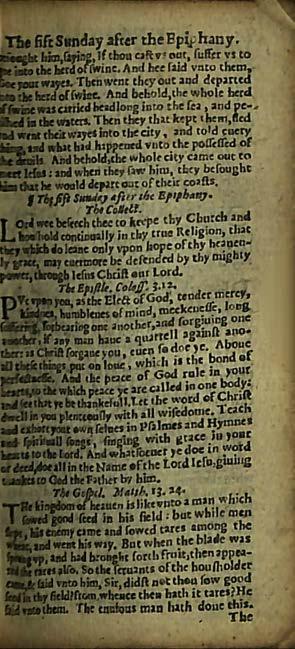 The fift Sunday after the Epiphany.
him, saying, If thou cast vs out, suffer vs to
into the herd of swine. And hee said vnto them,
your wayes. Then went they out and departed
the herd of swine. And behold, the whole herd
of swine was carried headlong into the sea, and pe-
in the waters. Then they that kept them, fled
and went their wayes into the city, and told euery
thing, and what had happened vnto the possessed of
the deuils. And behold, the whole city came out to
meet Iesus: and when they saw him, they besought
him that he would depart out of their coasts.
¶ The fift Sunday after the Epiphany.
The Collect.
LOrd wee beseech thee to keepe thy Church and
houshold continually in thy true Religion, that
they which do leane only vpon hope of thy heauen-
ly grace, may euermore be defended by thy mighty
power, through Iesus Christ our Lord.
The Epistle. Coloss. 3.12.
PVt vpon you, as the Elect of God, tender mercy,
kindnes, humblenes of mind, meekenesse, long
suffering, forbearing one another, and forgiuing one
another, if any man haue a quarrell against ano-
ther: as Christ forgaue you, euen so doe ye. Aboue
all these things put on loue, which is the bond of
perfectnesse. And the peace of God rule in your
hearts, to the which peace ye are called in one body:
and see that ye be thankefull. Let the word of Christ
dwell in you plenteously with all wisedome. Teach
and exhort your own selues in Psalmes and Hymnes
and spirituall songs, singing with grace in your
hearts to the Lord. And whatsoeuer ye doe in word
or deed, doe all in the Name of the Lord Iesu, giuing
thankes to God the Father by him.
The Gospel. Matth. 13. 24.
THe kingdom of heauen is like vnto a man which
sowed good seed in his field: but while men
slept, his enemy came and sowed tares among the
wheat, and went his way. But when the blade was
sprung vp, and had brought forth fruit, then appea-
the tares also. So the seruants of the housholder
came, & said vnto him, Sir, didst not thou sow good
seed in thy field? from whence then hath it tares? He
said vnto them. The enuious man hath done this.
The